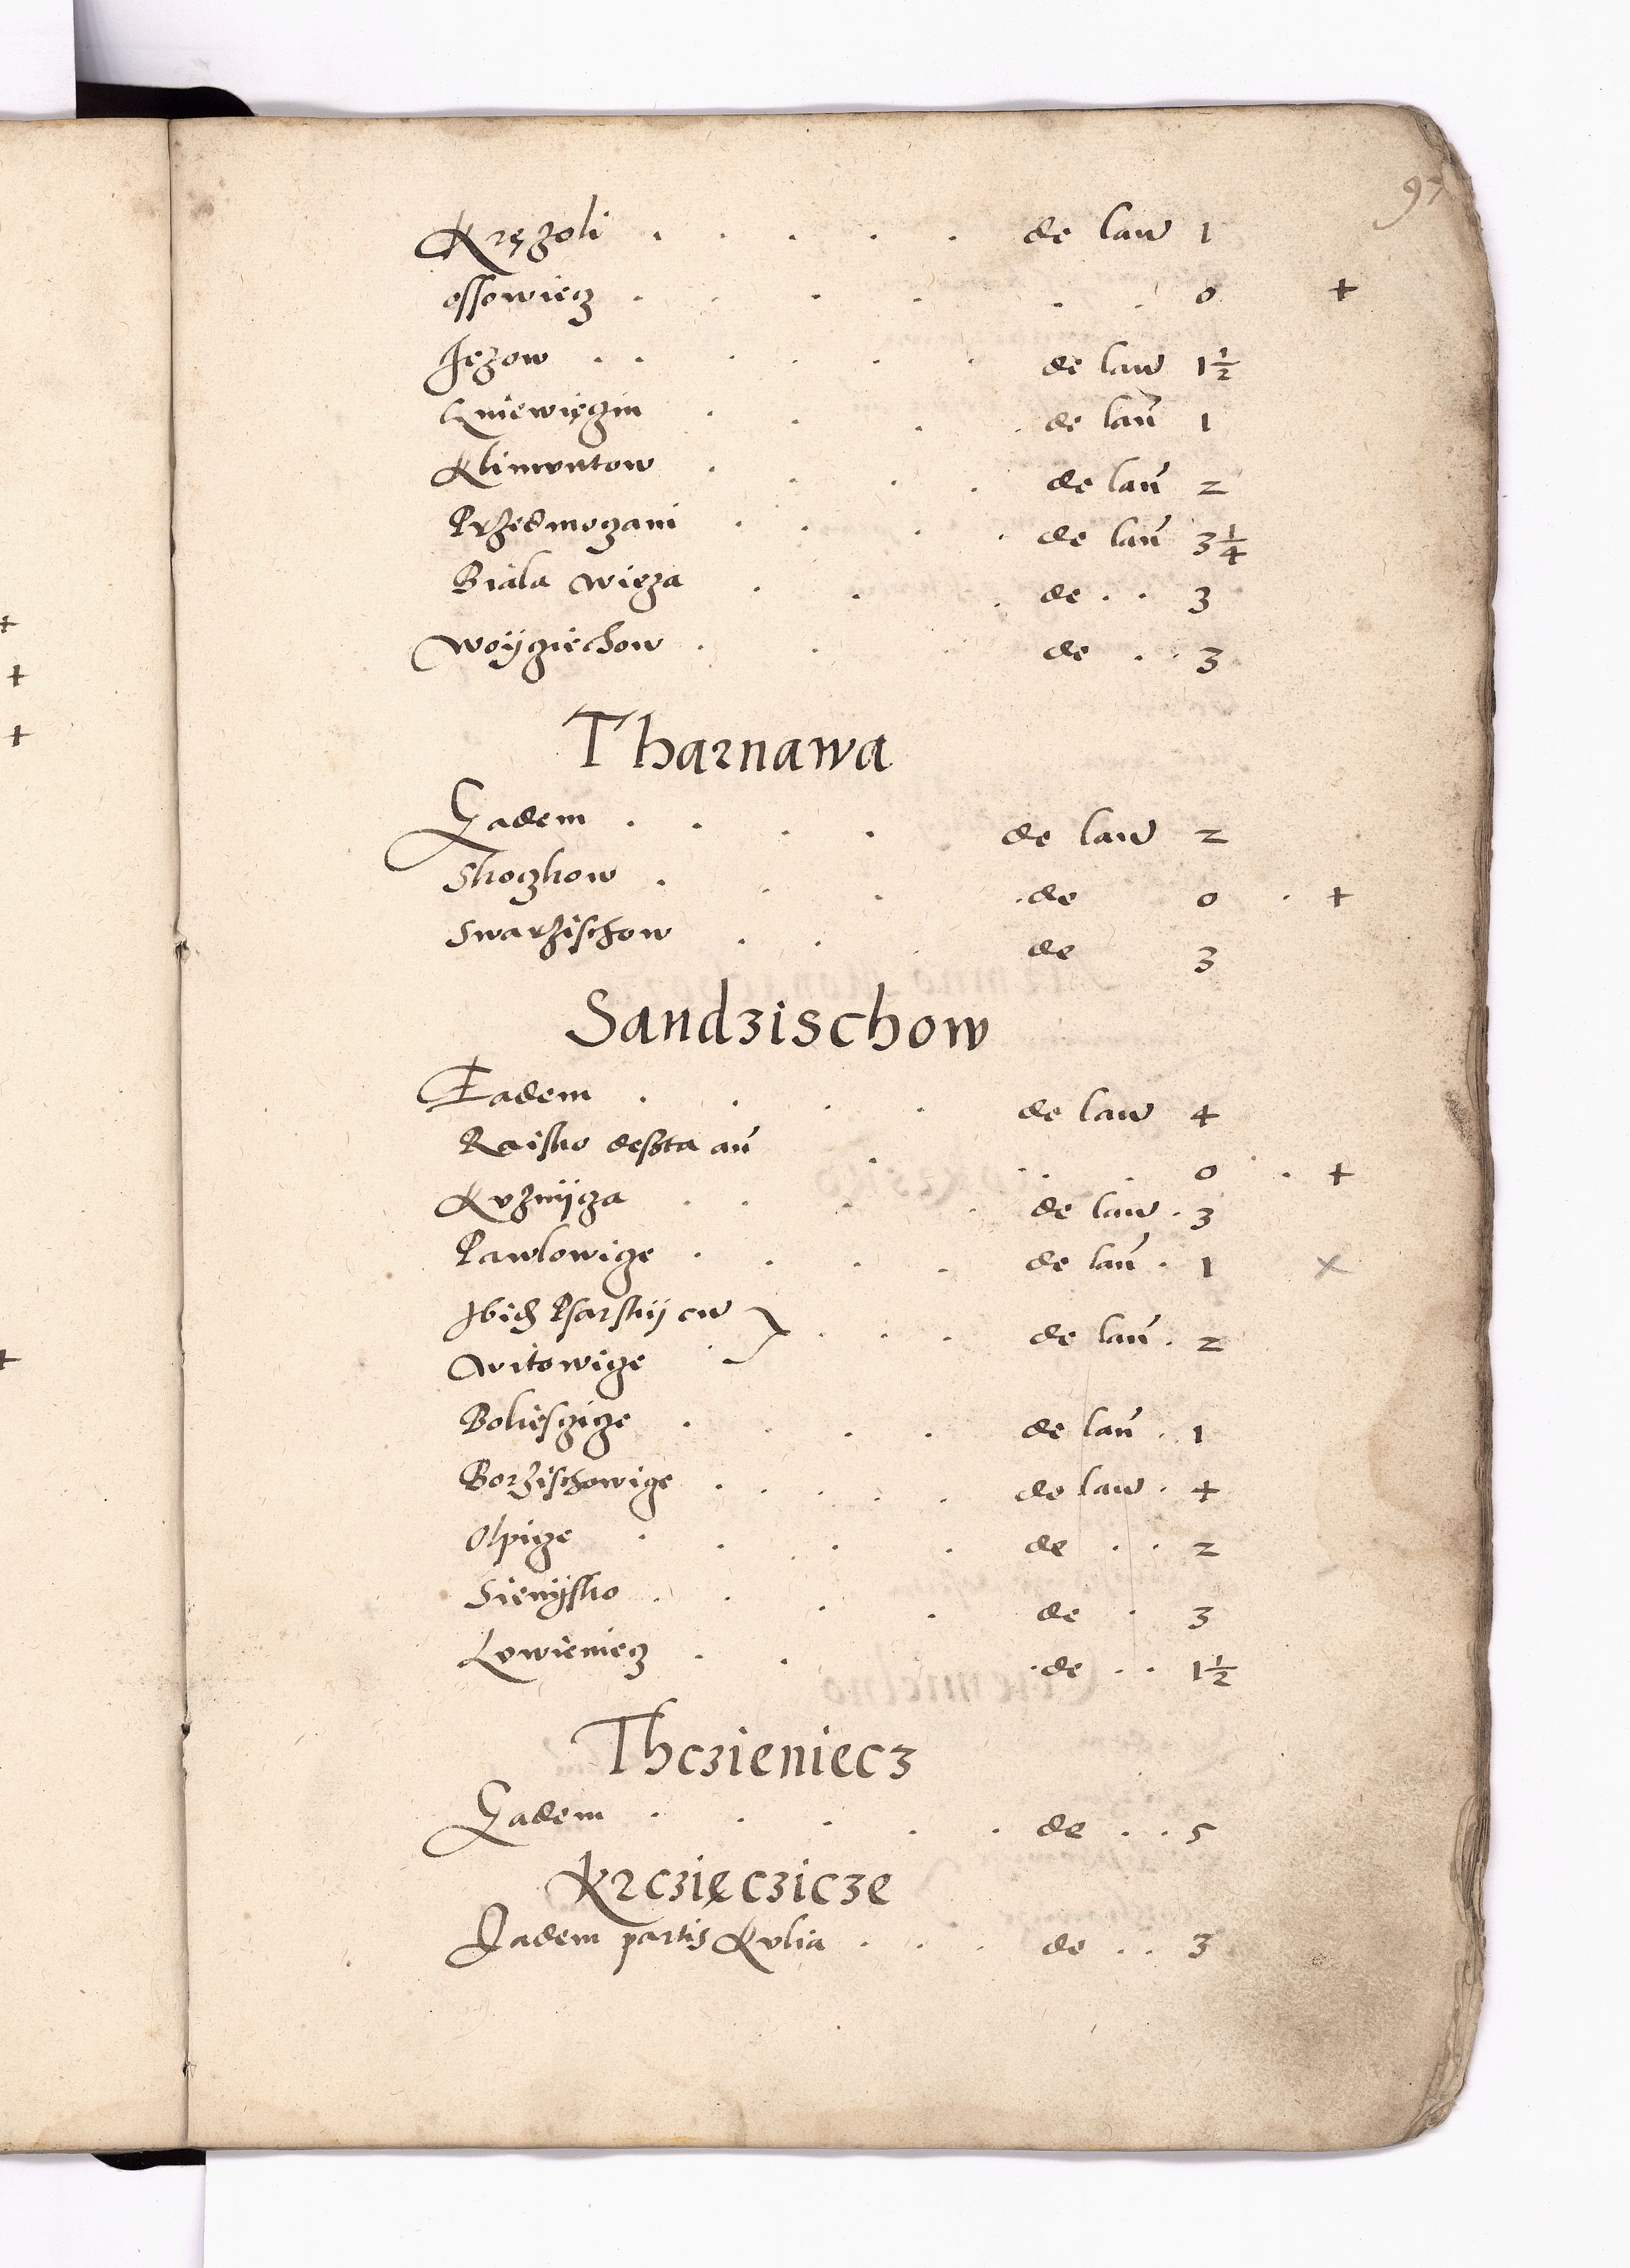 97
Kręzoli . . . . . de lan 1
ossowiecz . . . . . . 0 +
Jezow . . . . . . de lan 1½
Gniewięczin . . . . de lan 1
Klimuntow . . . . de lan 2
Przedmogani . . . . de lan 3¼
Biala wieza . . . de . . 3
woÿgiechow . . . de . . 3
Tharnawa
Eadem . . . . de lan 2
Skoczkow . . . . de 0 . +
Swarzischow . . . de 3
Sandzischow
Eadem . . . . de lan 4
Raisko deserta an . . . . 0 . . +
Kuznÿcza . . . . de lan . 3
Pawlowicze . . . . de lan . 1 x
Ibid Psarskÿ cu
witowicze . . . . de lan . 2
Bokiesczicze . . . . de lan . 1
Borzischowicze . . . . . de lan . 4
Olpicze . . . . . de . . 2
Sienÿsko . . . . de . 3
Lowieniecz . . . de . . 1½
Thczieniecz
Eadem . . . . . de . . 5
Krczięczicze
Eadem partis Kulia . . . de . . 3